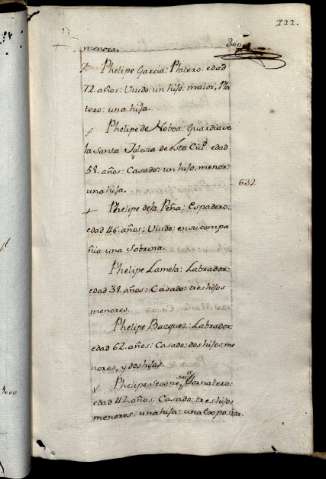 222.
300
menores.
Phelipe Garcia: Platero: edad
72 años: Viudo: un hijo maior, Pla
tero: una hija.
Phelipe de Noboa: Guardia de
la Santa Iglesia de esta
edad
58. años: Casado: un hijo menor:
una hija.
632
Phelipe de la Peña: Espadero:
edad 46. años: Viudo: en su compa
ñia una Sobrina.
Phelipe Lamela: Labrador:
edad 38. años: Casado: tres hijos
menores.
Phelipe Bacquez: Labrador
edad 62. años: Casado: dos hijos me
nores, y dos hijas.
Phelipe
Jornalero:
edad 42. años: Casado: tres hijos
menores: una hija: una